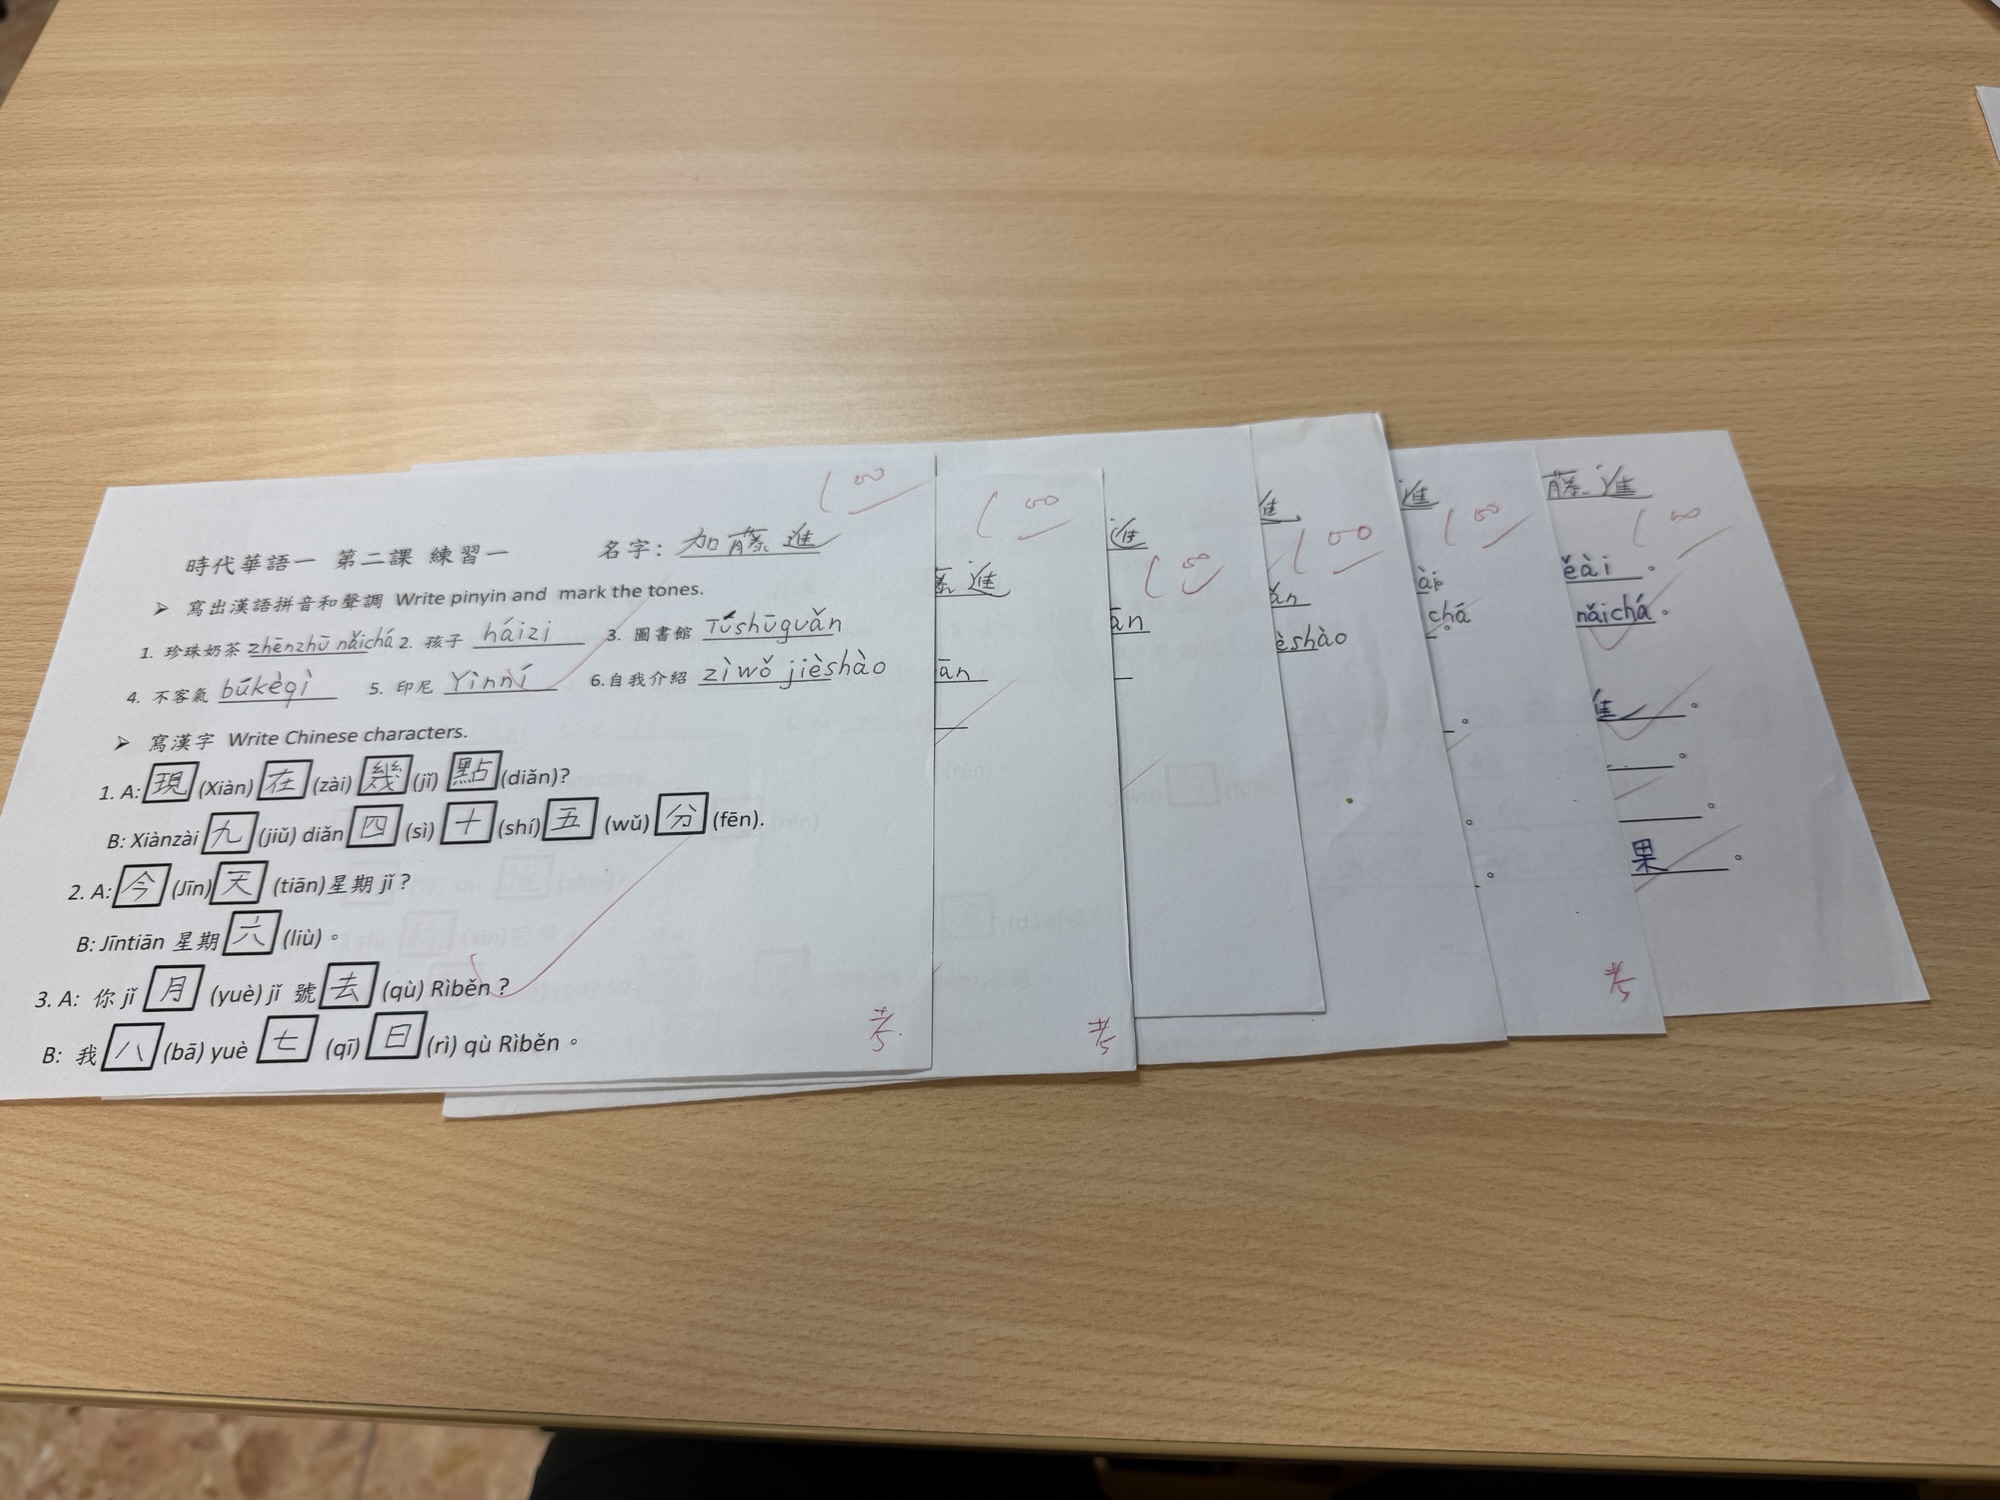 100
時代華語一 第二課 練習一 名字: 加藤進
➤ 寫出漢語拼音和聲調 Write pinyin and mark the tones.
1. 珍珠奶茶 zhēnzhū nǎichá 2. 孩子 háizi 3. 圖書館 Túshūguǎn
4. 不客氣 búkèqì 5. 印尼 Yìnní 6.自我介紹 zìwǒ jièshào
➤ 寫漢字 Write Chinese characters.
1. A: 現 (Xiàn) 在 (zài) 幾 (jǐ) 點 (diǎn)?
B: Xiànzài 九 (jiǔ) diǎn 四 (sì) 十 (shí) 五 (wǔ) 分 (fēn).
2. A: 今 (Jīn) 天 (tiān)星期 jǐ?
B: Jīntiān 星期 六 (liù)。
3. A: 你 jǐ 月 (yuè) jǐ 號 去 (qù) Rìběn?
B: 我 八 (bā) yuè 七 (qī) 日 (rì) qù Rìběn。
100
進
ān
100
進
ān
100
進
ǎn
èshào
100
進
chá
100
藤進
ěài。
nǎichá。
進。
果。